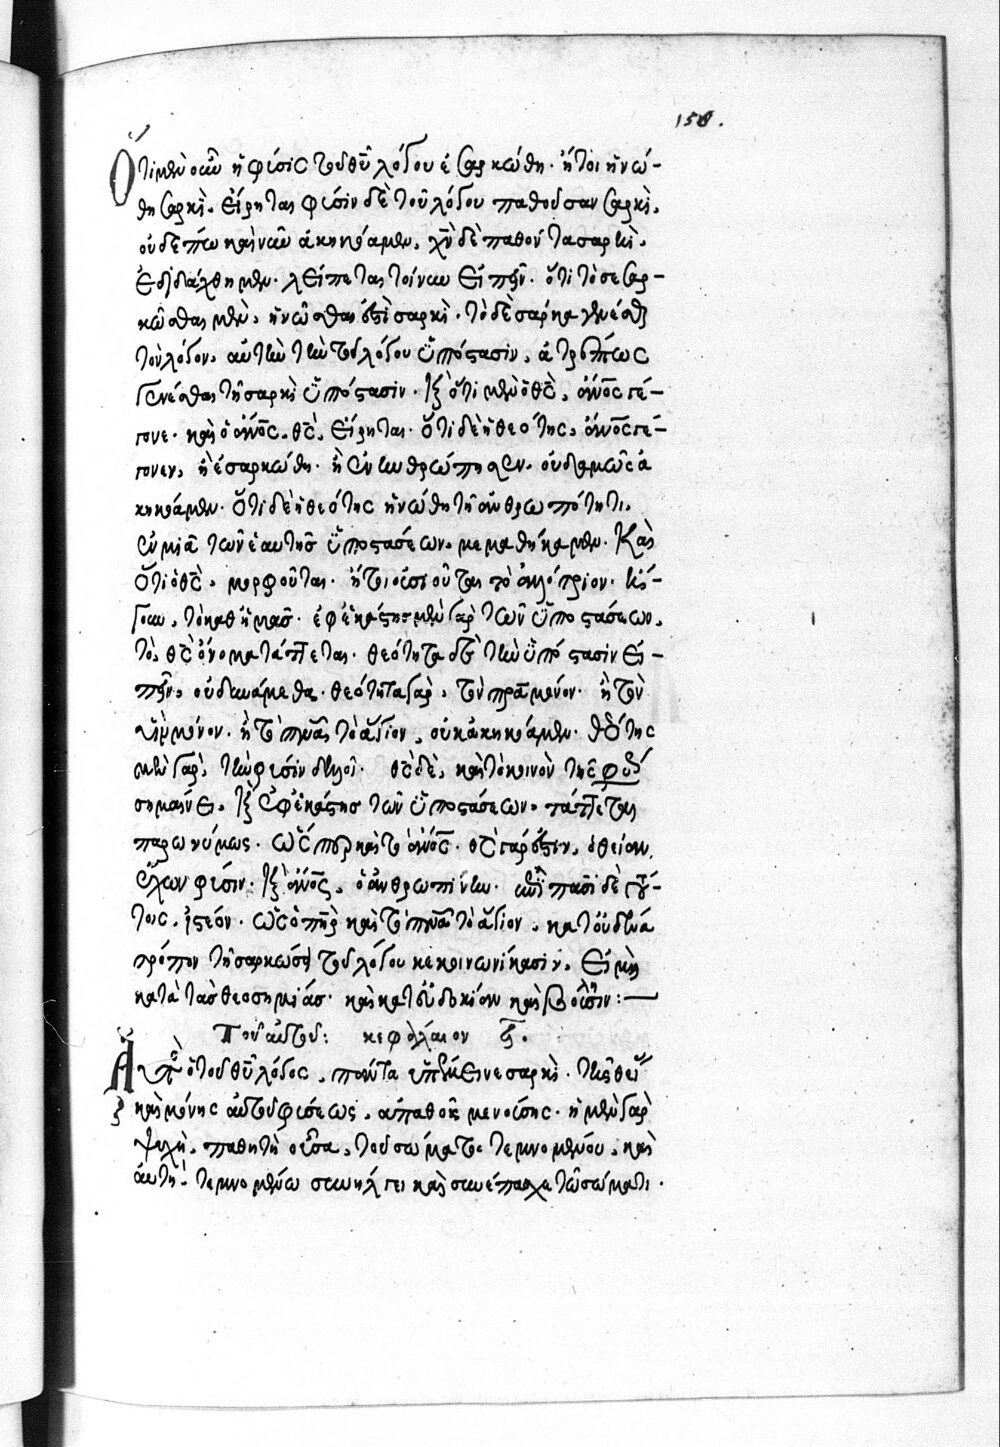 158.
Ὅτι μὲν οὖν ἡ φύσις τοῦ θῦ λόγου ἐσαρκώθη. ἤτοι ἡνώ-
θη σαρκὶ. εἴρηται. φύσιν δὲ τοῦ λόγου παθοῦσαν σαρκὶ,
οὐδέπω καὶ νῦν ἀκηκόαμεν. χν δὲ παθόντα σαρκὶ.
ἐδιδάχθημεν. λείπεται τοίνυν εἰπεῖν. ὅτι τὸ σεσαρ-
κῶσθαι μὲν, ἡνῶσθαι ἐστὶ σαρκὶ. τὸ δὲ σάρκα γενέσθαι
τὸν λόγον. αὐτὴν τὴν τοῦ λόγου ὑπόστασιν, ἀτρέπτως
γενέσθαι τῇ σαρκὶ ὑπόστασιν. καὶ ὅτι μὲν ὁ θς, ἄνος γέ-
γονε. καὶ ὁ ἄνος, θς, εἴρηται. ὅτι δὲ ἡ θεότης, ἄνος γέ-
γονεν, ἢ ἐσαρκώθη. ἢ ἐνηνθρώπησεν. οὐδαμῶς ἀ
κηκόαμεν. ὅτι δὲ ἡ θεότης ἡνώθη τῇ ἀνθρωπότητι.
ἐν μιᾷ τῶν ἑαυτῆς ὑποστάσεων. μεμαθήκαμεν. καὶ
ὅτι ὁ θς. μορφοῦται. ἤτοι οὐσιοῦται τὸ ἀλλότριον. λέ-
γουν, τὸ καθ' ἡμᾶς. ἐφ' ἑκάστης μὲν γὰρ τῶν ὑποστάσεων.
τὸ, θς ὄνομα τάττεται. θεότητα δὲ τὴν ὑπόστασιν εἰ-
πεῖν. οὐ δυνάμεθα. θεότητα γὰρ, τὸν πρα μόνον. ἢ τὸν
υἱὸν μόνον. ἢ τὸ πνα τὸ ἅγιον, οὐκ ἀκηκόαμεν. θεότης
μὲν γὰρ, τὴν φύσιν δηλοῖ. θς δὲ, καὶ τὸ κοινὸν τῆς φύσεως
σημαίνει. καὶ ἐφ' ἑκάστης τῶν ὑποστάσεων. τάττεται
παρωνύμως. ὥσπερ καὶ τὸ ἄνος. θς γάρ ἐστιν, ὁ θείαν
ἔχων φύσιν. καὶ ἄνος, ὁ ἀνθρωπίνην. ἐπὶ πᾶσι δὲ τού-
τοις, ἰστέον. ὡς ὁ πηρ καὶ τὸ πνα τὸ ἅγιον, κατ' οὐδένα
τρόπον τῇ σαρκώσει τοῦ λόγου κεκοινωνήκασιν. εἰ μὴ
κατὰ τὰς θεοσημίας. καὶ κατ' εὐδοκίαν καὶ βούλησιν:—
Τοῦ αὐτοῦ: κεφάλαιον ζ.
Αὐτὸς ὁ τοῦ θῦ λόγος, πάντα ὑπέμεινε σαρκὶ. τῆς θείας
καὶ μόνης αὐτοῦ φύσεως, ἀπαθοῦς μενούσης. ἡ μὲν γὰρ
ψυχὴ, παθητὴ οὖσα, τοῦ σώματος τεμνομένου, καὶ
αὐτὴ μὴ τεμνομένη συνήλγει καὶ συνέπασχε τῷ σώματι.